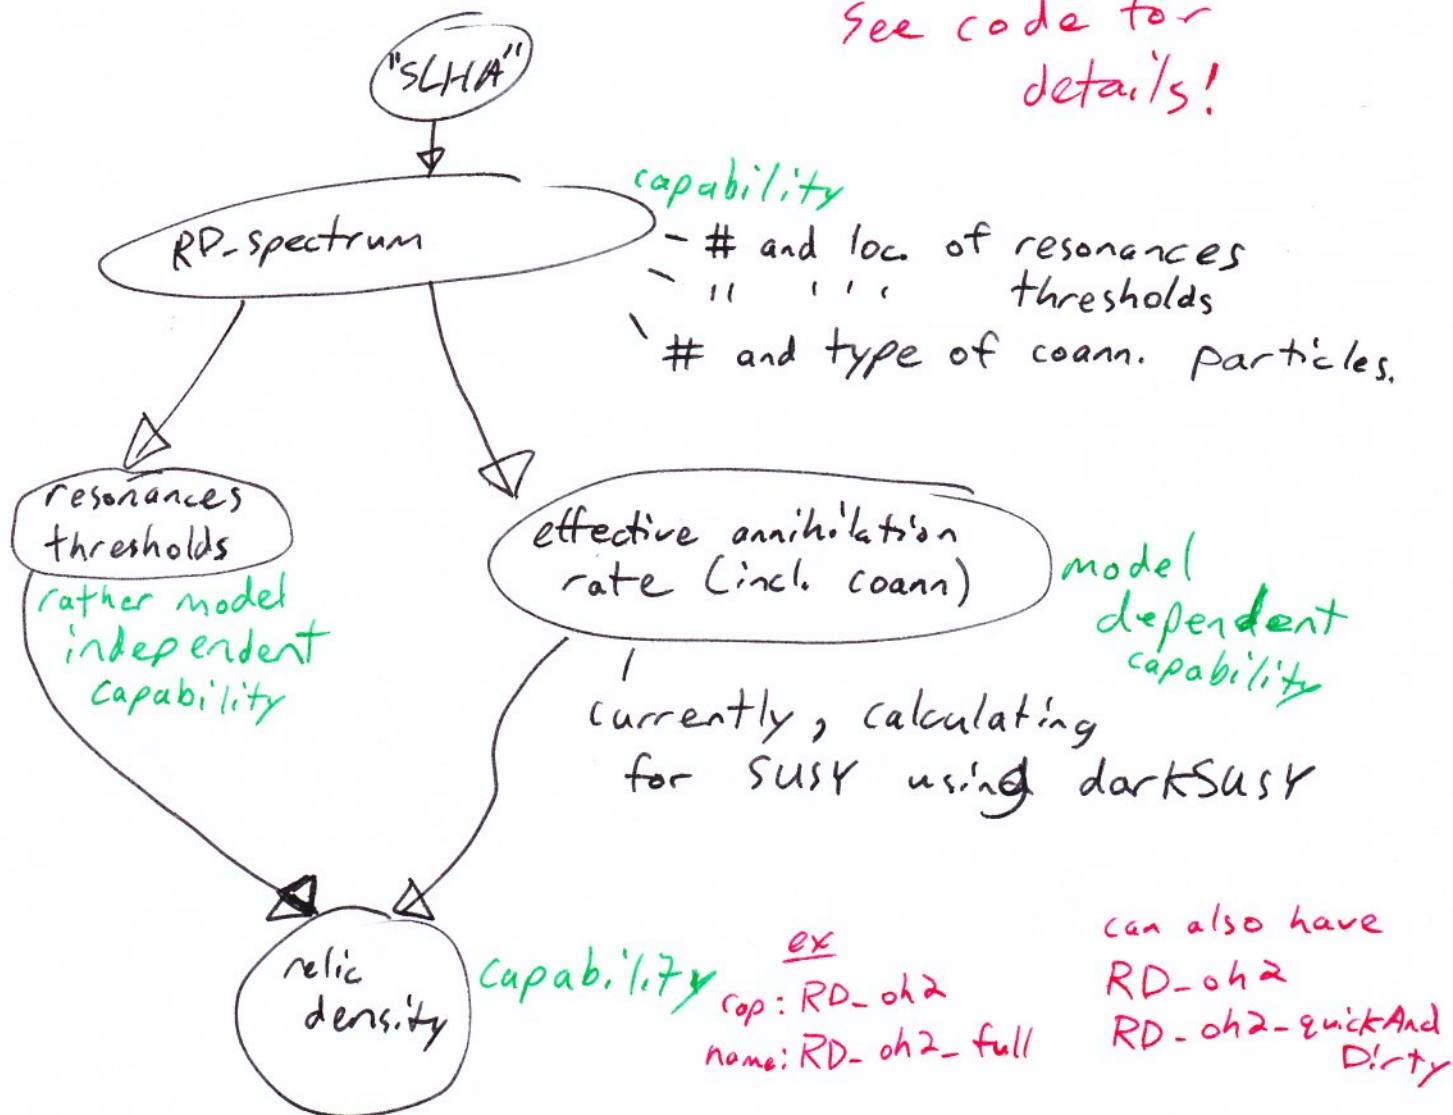 See code for
details!
"SLHA"
capability
RD_spectrum
- # and loc. of resonances
" " " thresholds
# and type of coann. particles.
resonances
thresholds
rather model
independent
capability
effective annihilation
rate (incl. coann)
model
dependent
capability
currently, calculating
for SUSY using darkSUSY
relic
density
capability
ex
cap: RD_oh2
name: RD_oh2_full
can also have
RD_oh2
RD_oh2_quickAnd
Dirty